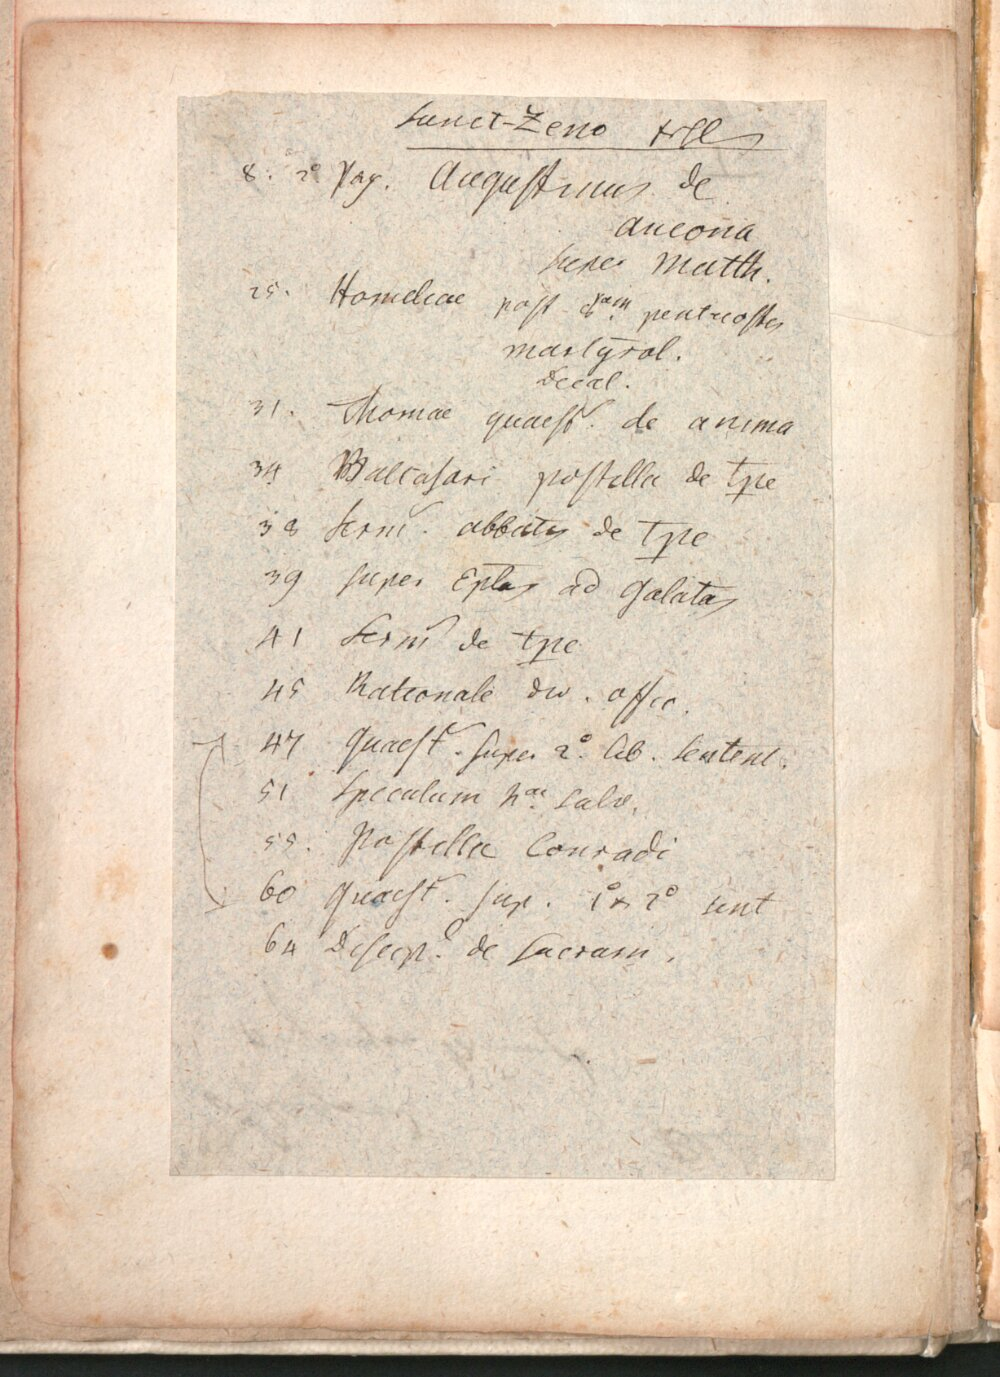 Sanct-Zeno
8. 2° Pag. Augustinus de
Ancona
super Matth.
25. Homeliae post 8am pentecostes
martyrol.
Decal.
31. Thomae quaest. de anima
34 Baltasari postilla de tpe
38 Serm. abbatis de Tpe
39 super Eplas ad Galatas
41 Serm de tpe
45 Rationale div. offic.
47 Quaest. super 2° lib. sentent.
51 Speculum hae salv.
55. Postilla Conradi
60 Quaest. sup. 1° & 2° sent
64 Discip. de Sacram.